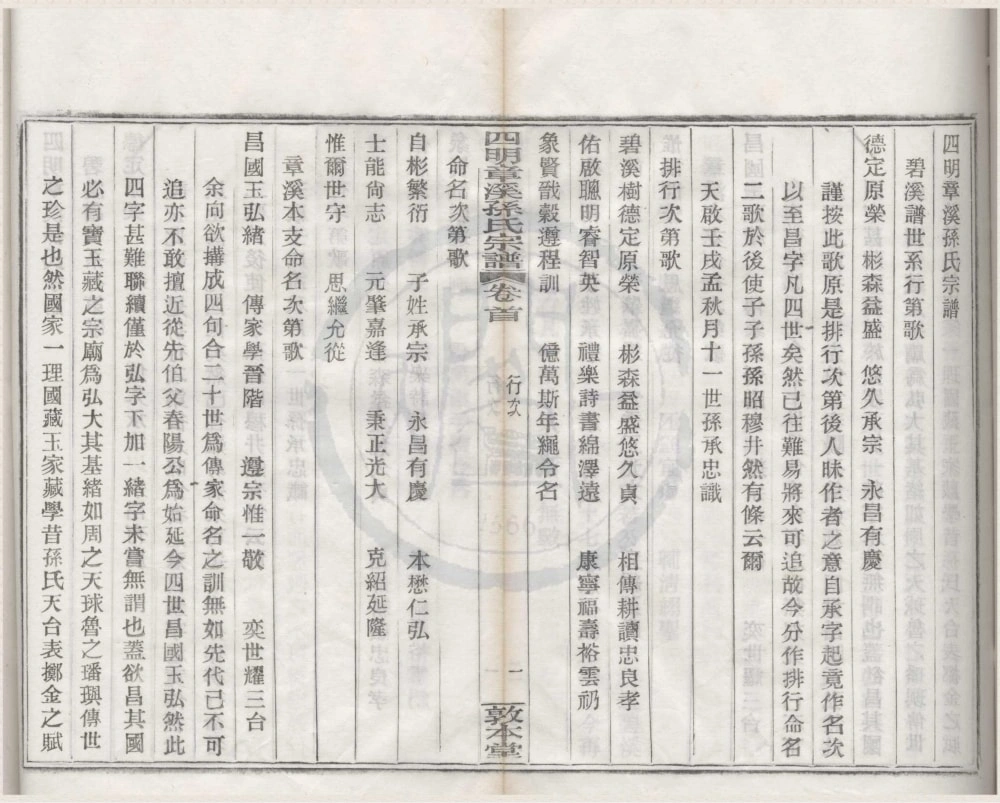 四明章溪孫氏宗譜
碧溪譜世系行第歌
德定原榮 彬森益盛 悠久承宗 永昌有慶
謹按此歌原是排行次第後人昧作者之意自承字起竟作名次
以至昌字凡四世矣然已往難易將來可追故今分作排行命名
二歌於後使子子孫孫昭穆井然有條云爾
天啟壬戌孟秋月十一世孫承忠識
排行次第歌
碧溪樹德定原榮 彬森益盛悠久貞 相傳耕讀忠良孝
佑啟聰明睿智英 禮樂詩書綿澤遠 康寧福壽裕雲礽
象賢戩穀遵程訓 億萬斯年繩令名
四明章溪孫氏宗譜 卷首 行次 一 敦本堂
命名次第歌
自彬繁衍 子姓承宗 永昌有慶 本懋仁弘
士能尙志 元肇嘉逢 秉正光大 克紹延隆
惟爾世守 思繼允從
章溪本支命名次第歌
昌國玉弘緒 傳家學晉階 遵宗惟一敬 奕世耀三台
余向欲搆成四句合二十世爲傳家命名之訓無如先代已不可
追亦不敢擅近從先伯父春陽公爲始延今四世昌國玉弘然此
四字甚難聯續僅於弘字下加一緒字未嘗無謂也蓋欲昌其國
必有寶玉藏之宗廟爲弘大其基緒如周之天球魯之璠璵傳世
之珍是也然國家一理國藏玉家藏學昔孫氏天台表擲金之賦